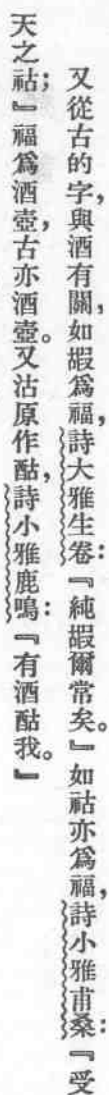 又從古的字，與酒有關，如嘏爲福，詩大雅生卷：『純嘏爾常矣。』如祜亦爲福，詩小雅甫桑：『受
天之祜；』福爲酒壺，古亦酒壺。又沽原作酤，詩小雅鹿鳴：『有酒酤我。』